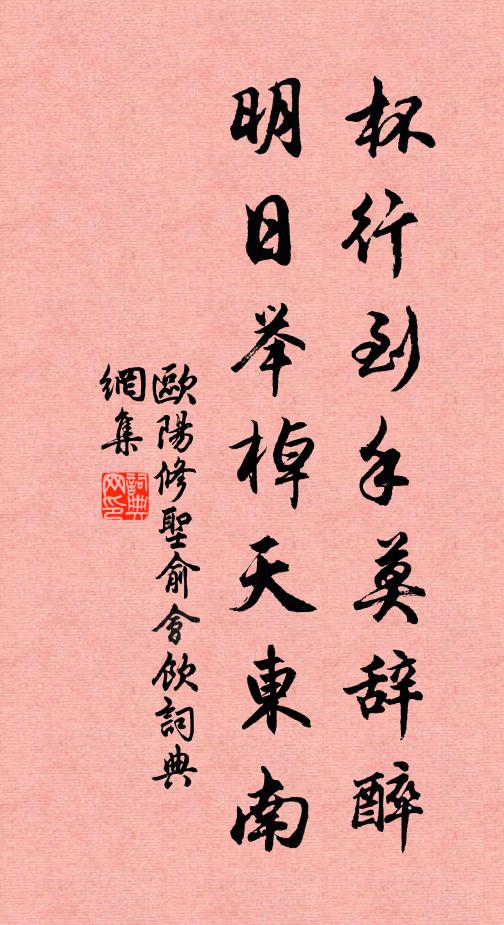 杯行到手莫辞醉
明日举棹天東南
歐陽修聖俞會飲詞典
網集
詞典
网印